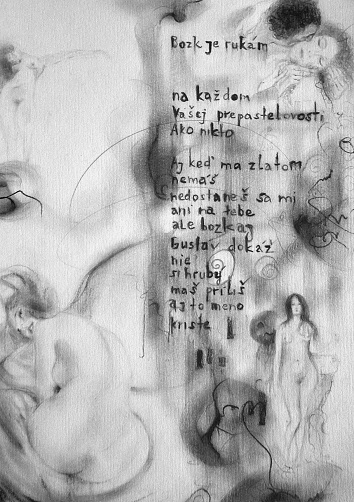 Bozk je rukám
na každom
Vašej prepastelovosti
Ako nikto
Aj keď ma zlatom
nemáš
nedostaneš sa mi
ani na tebe
ale bozkaj
Gustav dokáž
nie
si hrubý
maš príliš
aj to meno
kriste